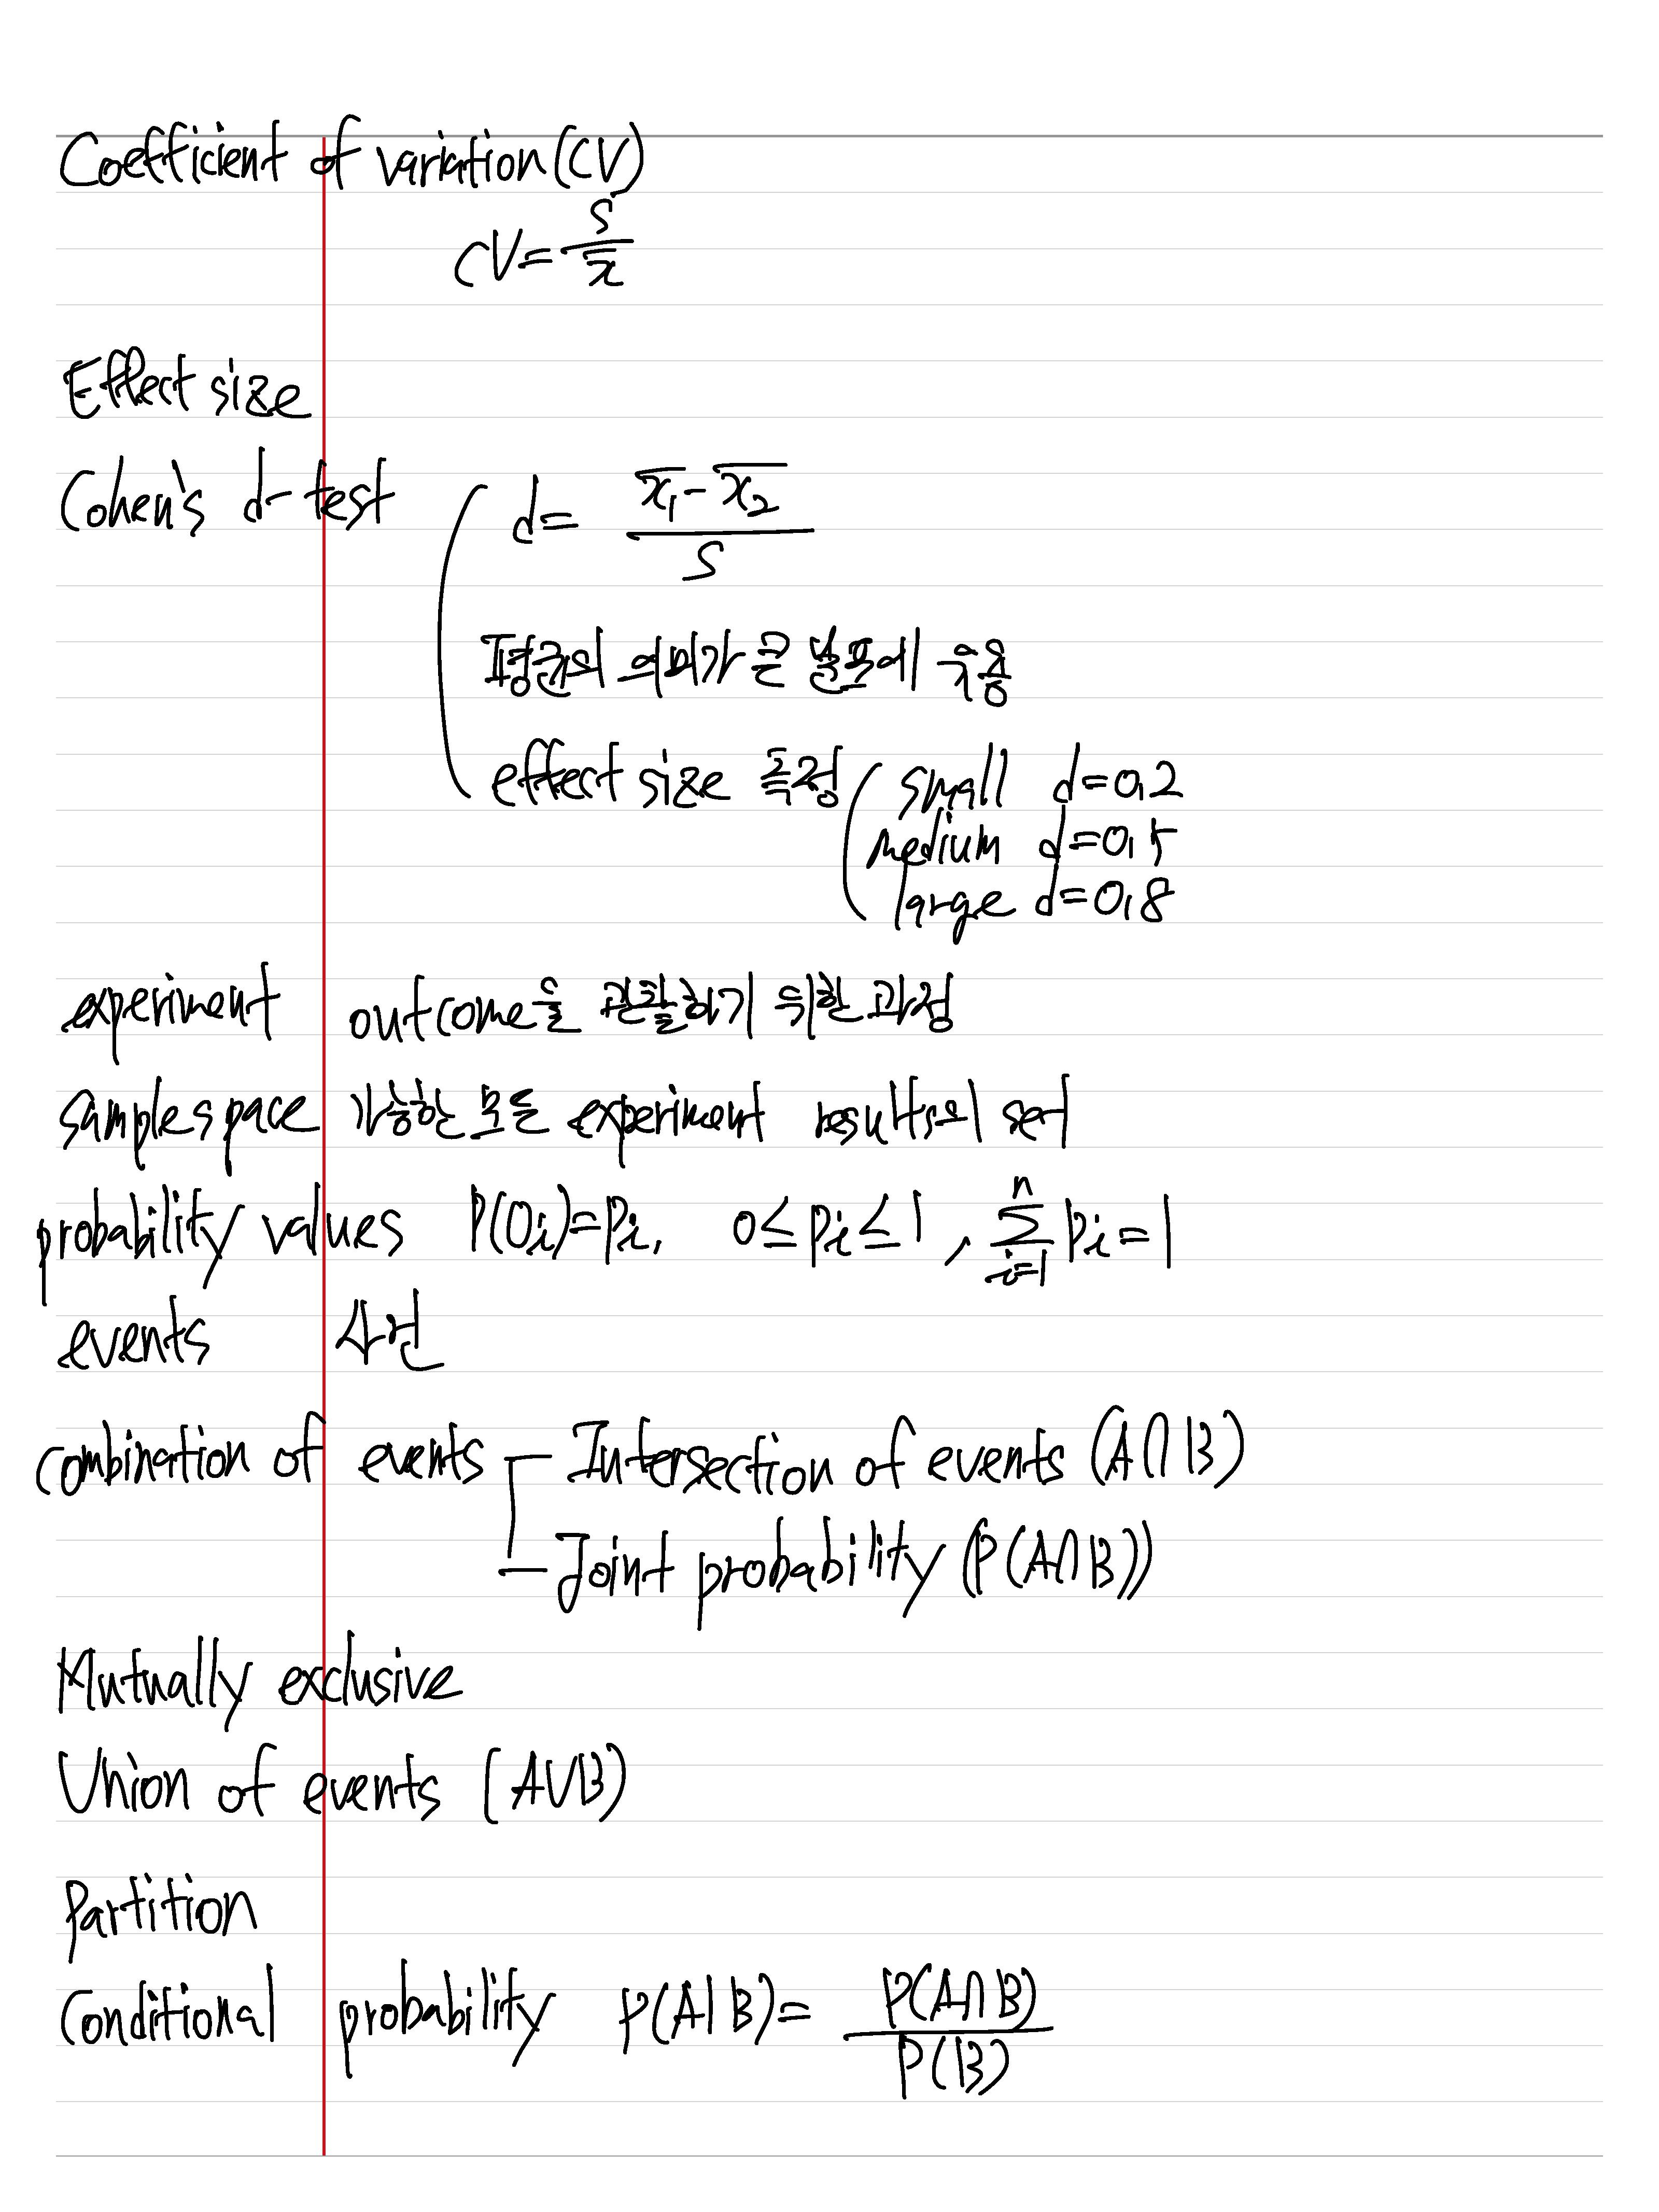 Coefficient of variation (CV)
CV = s / x̄
Effect size
Cohen's d-test
d = (x̄₁ - x̄₂) / s
평균의 의미가 큰 분포에 유용
effect size 측정
small d=0.2
medium d=0.5
large d=0.8
experiment outcome을 관찰하기 위한 과정
sample space 가능한 모든 experiment results의 set
probability values P(Oi)=Pi, 0≤Pi≤1, Σ_{i=1}^{n} Pi=1
events 사건
combination of events - Intersection of events (A∩B)
- Joint probability (P(A∩B))
Mutually exclusive
Union of events (A∪B)
Partition
Conditional probability P(A|B) = P(A∩B) / P(B)